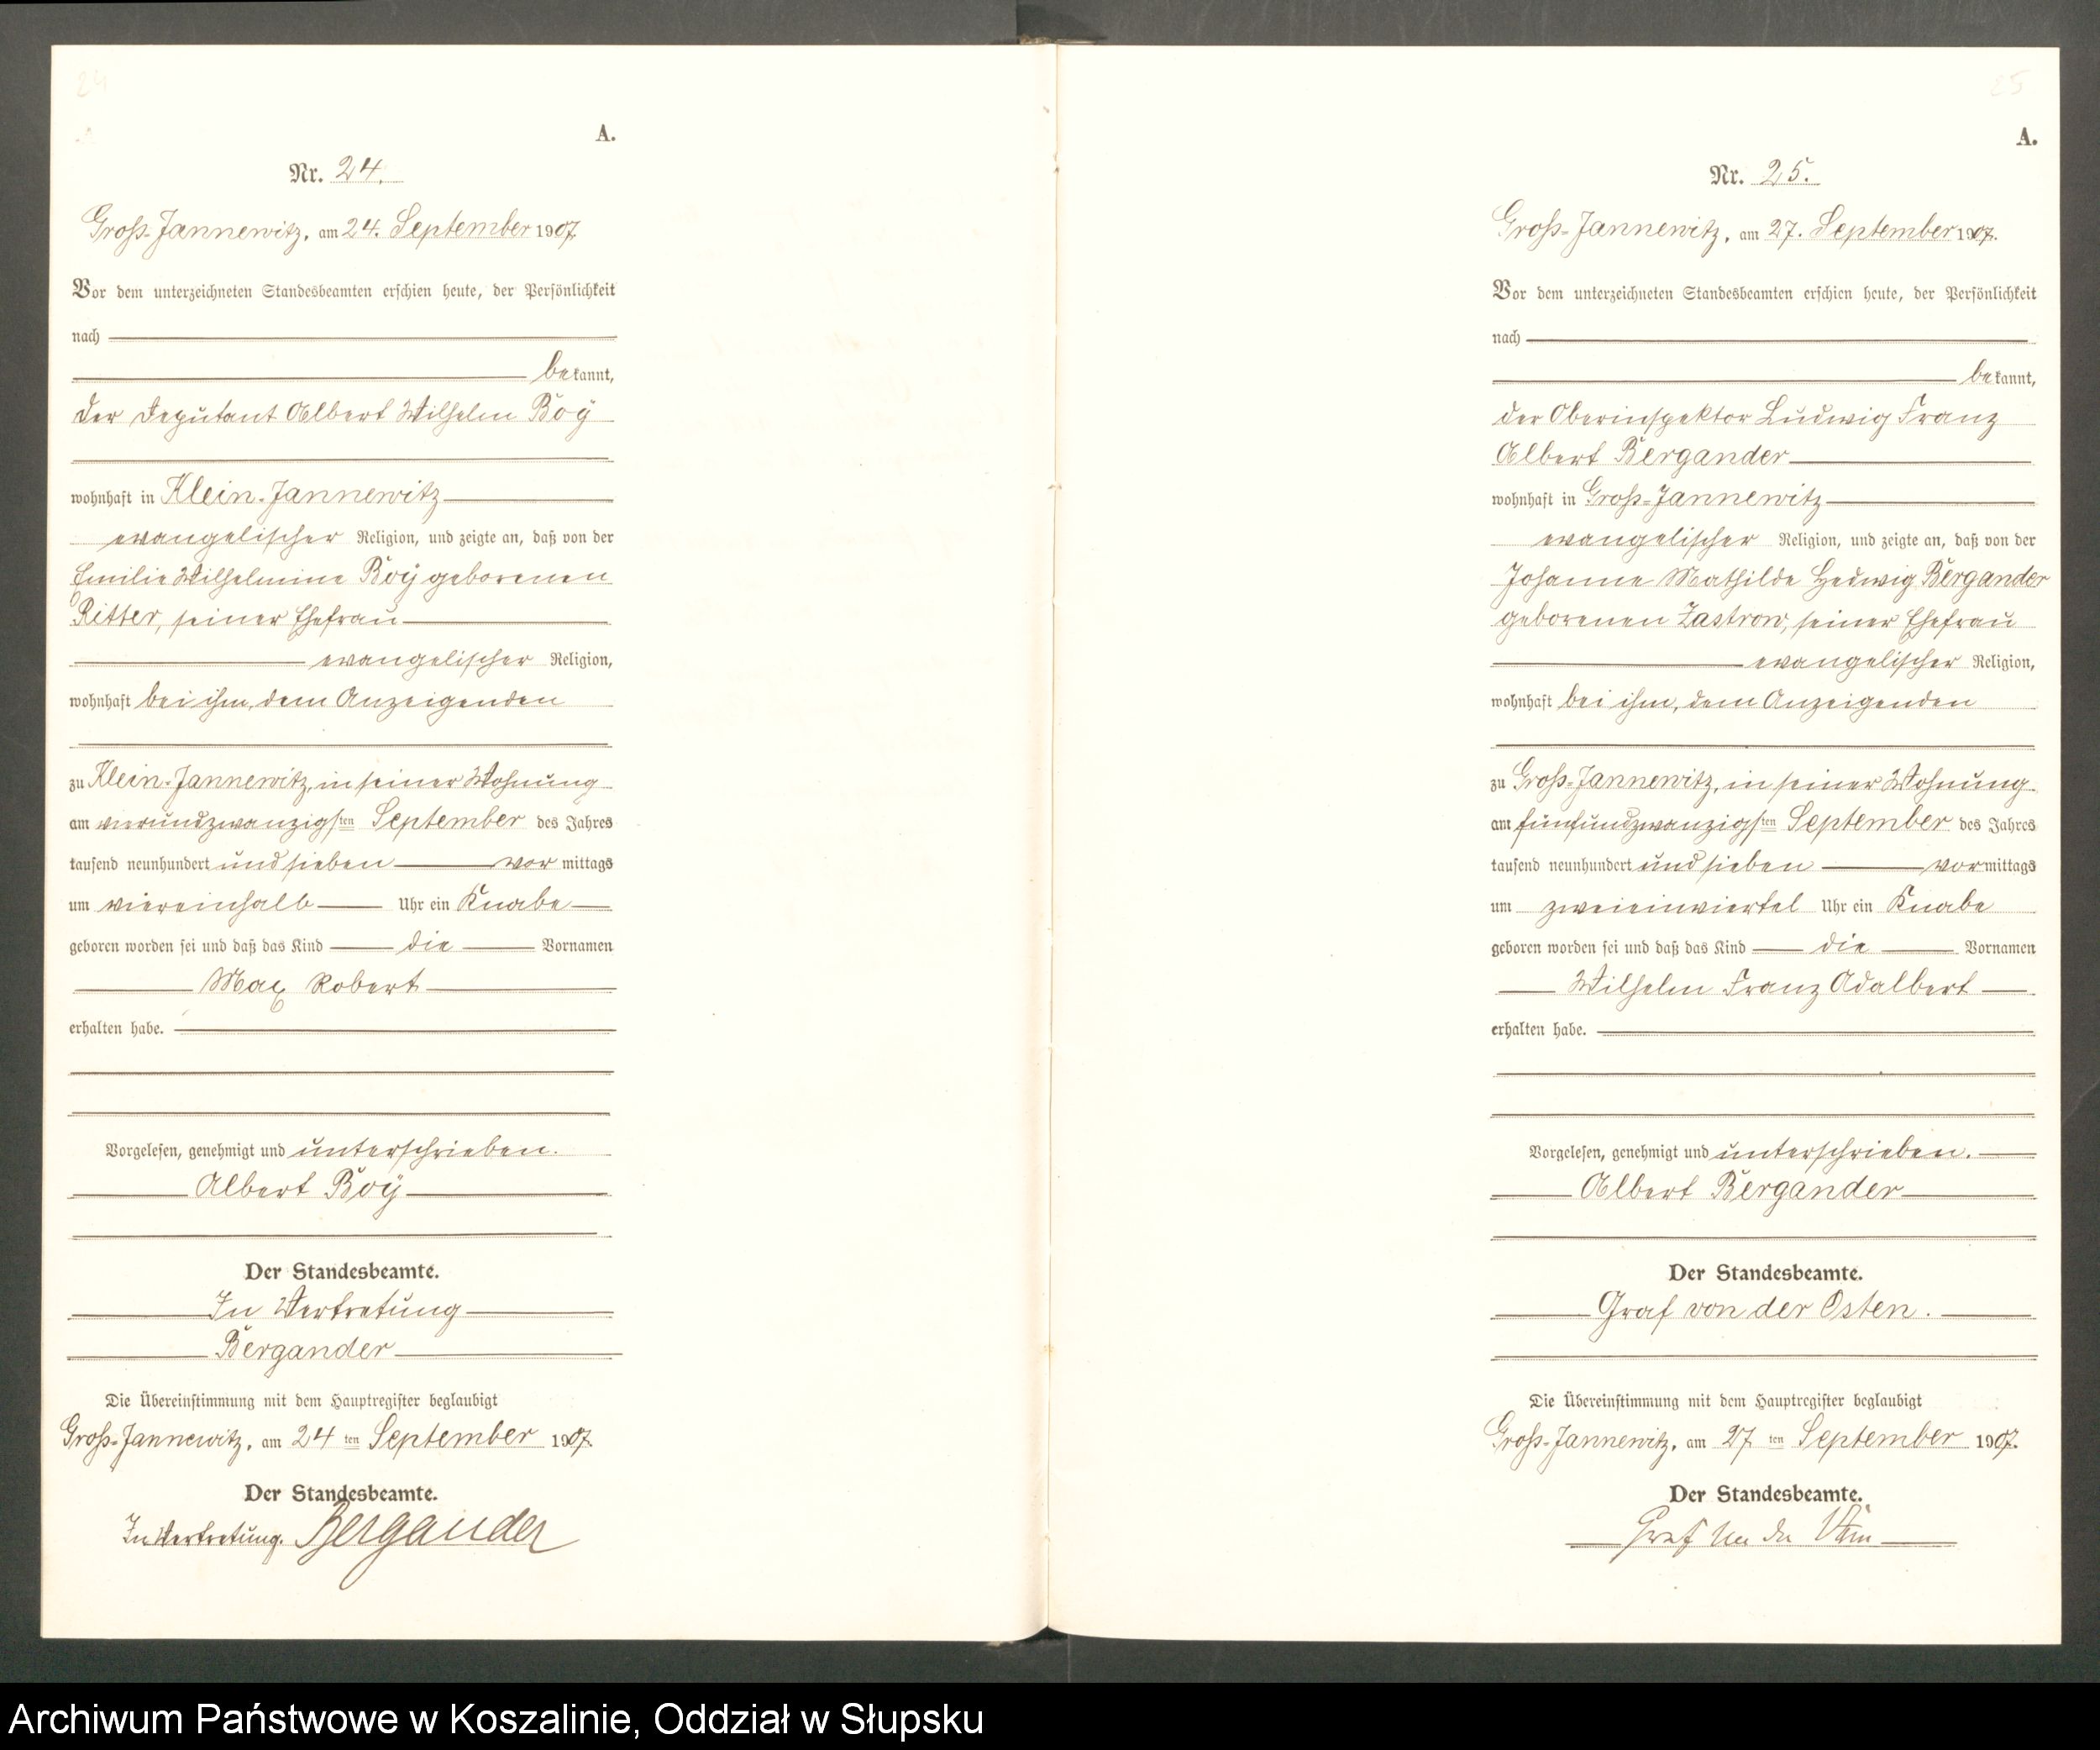 24
A.
Nr. 24.
Groß-Jannewitz, am 24. September 1907.
Vor dem unterzeichneten Standesbeamten erschien heute, der Persönlichkeit
nach
bekannt,
der Deputant Albert Wilhelm Boÿ
wohnhaft in Klein-Jannewitz
evangelischer Religion, und zeigte an, daß von der
Emilie Wilhelmine Boÿ geborenen
Ritter, seiner Ehefrau
evangelischer Religion,
wohnhaft bei ihm, dem Anzeigenden
zu Klein-Jannewitz, in seiner Wohnung
am vierundzwanzigsten September des Jahres
tausend neunhundert und sieben vormittags
um viereinhalb Uhr ein Knabe
geboren worden sei und daß das Kind die Vornamen
Max Robert
erhalten habe.
Vorgelesen, genehmigt und unterschrieben.
Albert Boÿ
Der Standesbeamte.
In Vertretung
Bergander
Die Übereinstimmung mit dem Hauptregister beglaubigt
Groß-Jannewitz, am 24 ten September 1907.
Der Standesbeamte.
In Vertretung. Bergander
25
A.
Nr. 25.
Groß-Jannewitz, am 27. September 1907.
Vor dem unterzeichneten Standesbeamten erschien heute, der Persönlichkeit
nach
bekannt,
der Oberinspektor Ludwig Franz
Albert Bergander
wohnhaft in Groß-Jannewitz
evangelischer Religion, und zeigte an, daß von der
Johanne Mathilde Hedwig Bergander
geborenen Zastrow, seiner Ehefrau
evangelischer Religion,
wohnhaft bei ihm, dem Anzeigenden
zu Groß-Jannewitz, in seiner Wohnung
am fünfundzwanzigsten September des Jahres
tausend neunhundert und sieben vormittags
um zweieinviertel Uhr ein Knabe
geboren worden sei und daß das Kind die Vornamen
Wilhelm Franz Adalbert
erhalten habe.
Vorgelesen, genehmigt und unterschrieben.
Albert Bergander
Der Standesbeamte.
Graf von der Osten.
Die Übereinstimmung mit dem Hauptregister beglaubigt
Groß-Jannewitz, am 27 ten September 1907.
Der Standesbeamte.
Graf von der Osten
Archiwum Państwowe w Koszalinie, Oddział w Słupsku